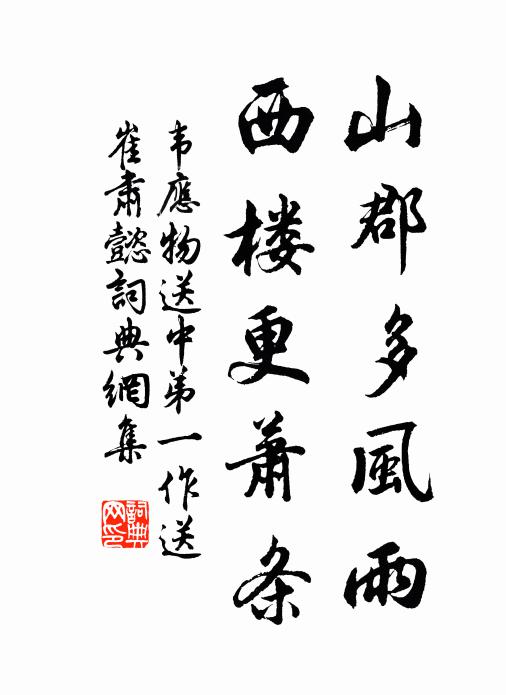 山郡多風雨
西楼更蕭条
韦應物送中弟一作送
崔肅懿詞典網集
詞典
网印